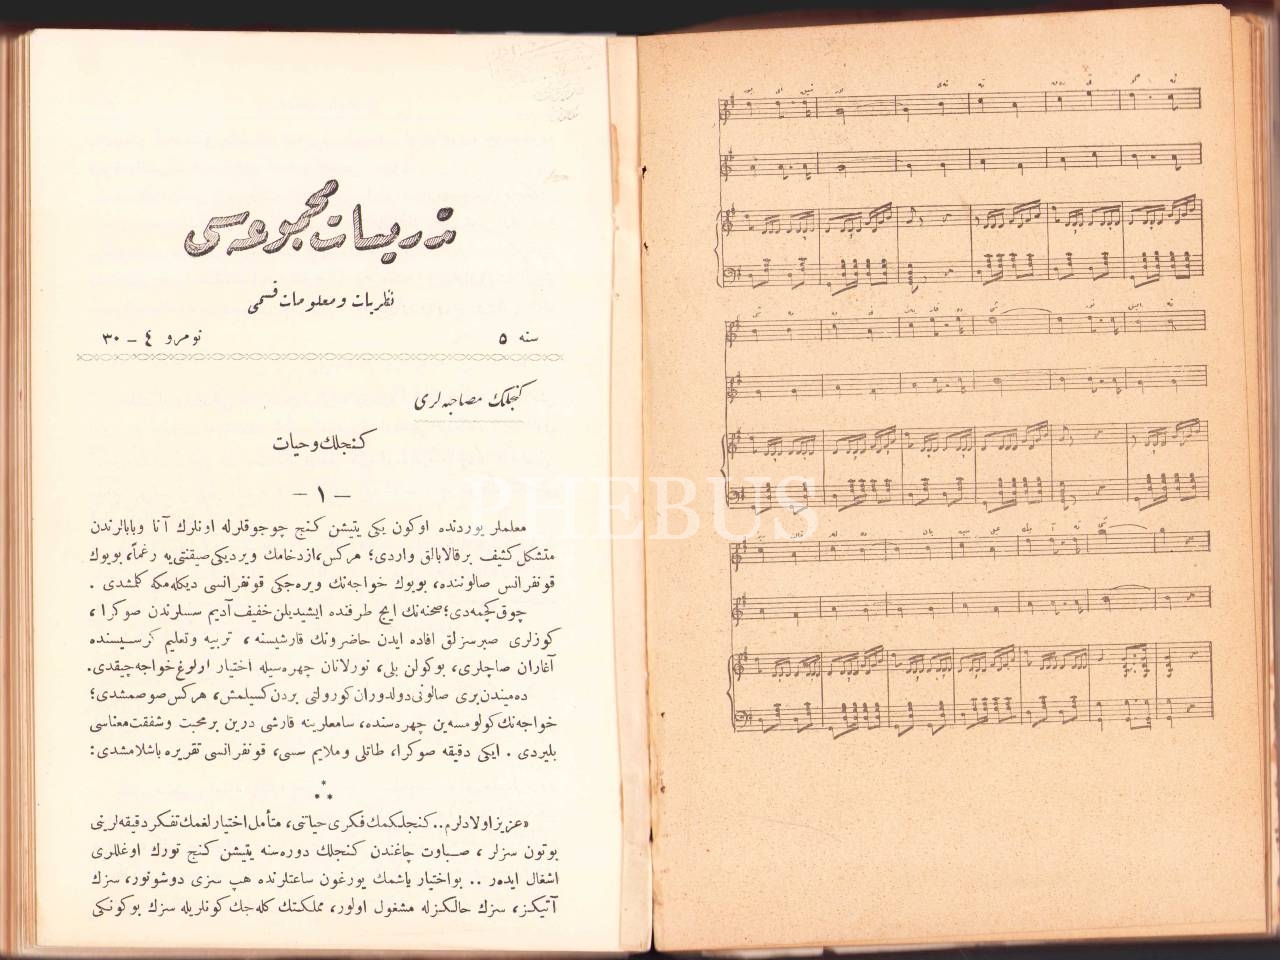 تدريسات مجموعه‌سى
نظريات و معلومات قسمى
سنه ٥ نومرو ٤ – ٣٠
كنجلك مصاحبه‌لرى
كنجلك و حيات
– ١ –
معلملر يوردنده اوكون يكى يتيشن كنج چوجوقلرله اونلرك آنا وبابالرندن
متشكل كثيف بر قالابالق واردى؛ هركس، ازدحامك ويرديكى صيقنتى‌يه رغماً، بويوك
قونفرانس صالوننده، بويوك خواجه‌نك ويره‌جكى قونفرانسى ديكله‌مكه كلمشدى .
چوق كچمه‌دى؛ صحنه‌نك ايچ طرفنده ايشيديلن خفيف آديم سسلرندن صوكرا ،
كوزلرى صبرسزلق افاده ايدن حاضرونك قارشيسنه ، تربيه وتعليم كرسيسنده
آغاران صاچلرى، بوكولن بلى، نورلانان چهره‌سيله اختيار اولوغ خواجه چيقدى.
ده‌ميندن برى صالونى دولدوران كورولتى بردن كسيلمش، هركس صوصمشدى؛
خواجه‌نك كولومسه‌ين چهره‌سنده، سامعلرينه قارشى درين بر محبت وشفقت معناسى
بليردى . ايكى دقيقه صوكرا، طاتلى وملايم سسى، قونفرانسى تقريره باشلامشدى:
⁂
«عزيز اولادلرم.. كنجلكمك فكرى حياتنى، متأمل اختيارلغمك تفكر دقيقه‌لرينى
بوتون سزلر ، صباوت چاغندن كنجلك دوره‌سنه يتيشن كنج تورك اوغللرى
اشغال ايده‌ر .. بو اختيار ياشمك يورغون ساعتلرنده هپ سزى دوشونور، سزك
آتيكز، سزك حالكزله مشغول اولور، مملكتك كله‌جك كونلريله سزك بوكونكى
PHEBUS